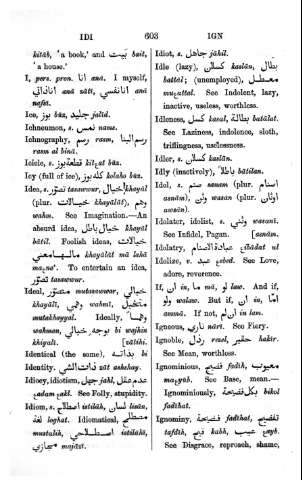 IDI 603 IGN
kitáb, 'a book,' and بيت bait,
'a house.'
I, pers. pron. انا aná. I myself,
انا نفسي aná nafsí, انا ذاتي aná
Ice, s. بوز búz, جليد jalíd.
Ichneumon, s. نمس nams.
Ichnography, رسم البنا, rasm,
rasm al biná.
Icicle, s. قطعة بوز kiṭȩat búz.
Icy (full of ice), بوز
Idea, s. تصور tasawwur, خيال khayál
(plur. خيالات khayálát), وهم
wahm. See Imagination.—An
absurd idea, خيال باطل khayál
bátil. Foolish ideas, خيالات
ما لها معنى khayálát má lahá
maȩna'. To entertain an idea,
تصور tasawwur.
Ideal, متصور mutasawwar, خيالي
khayálí, وهمي wahmí, متخيل
mutakhayyal. Ideally, وهما
wahman, بوجه خيالي bi wajhin
khiyalí.
Identical (the same), بذاته bi
Identity. ذات الشي zát ashshay.
Idiocy, idiotism, جهل jahl, عدم عقل
ȩadam ȩakl. See Folly, stupidity.
Idiom, s. اصطلاح istiláh, لسان lisán,
لغة loghat. Idiomatical,
مصطلح mustalih, اصطلاحي istiláhí,
مجازي majází.
Idiot, s. جاهل jáhil.
Idle (lazy), كسلان kaslán, بطال
battál; (unemployed), معطل
muȩattal. See Indolent, lazy,
inactive, useless, worthless.
Idleness, كسل kasal, بطالة batálat.
See Laziness, indolence, sloth,
triflingness, uselessness.
Idler, s. كسلان kaslán.
Idly (inactively), باطلا bátilan.
Idol, s. صنم sanam (plur. اصنام
asnám), وثن wasan (plur. اوثان
awsán).
Idolater, idolist, s. وثني wasaní.
See Infidel, Pagan. [asnám.
Idolatry, عبادة الاصنام ȩibádat ul
Idolize, v. عبد ȩabad. See Love,
adore, reverence.
If, ان in, ما má, لو law. And if,
ولو walaw. But if, ان in, اما
ammá. If not, ان لم in lam.
Igneous, ناري nárí. See Fiery.
Ignoble, رذل razl, حقير hakír.
See Mean, worthless.
Ignominious, فضح fadíh, معيوب
maȩyúb. See Base, mean.—
Ignominiously, بكل فضيحة bikol
fadíhat.
Ignominy, فضيحة fadíhat, تفضيح
tafdíh, قبح kabh, عيب ȩayb.
See Disgrace, reproach, shame,